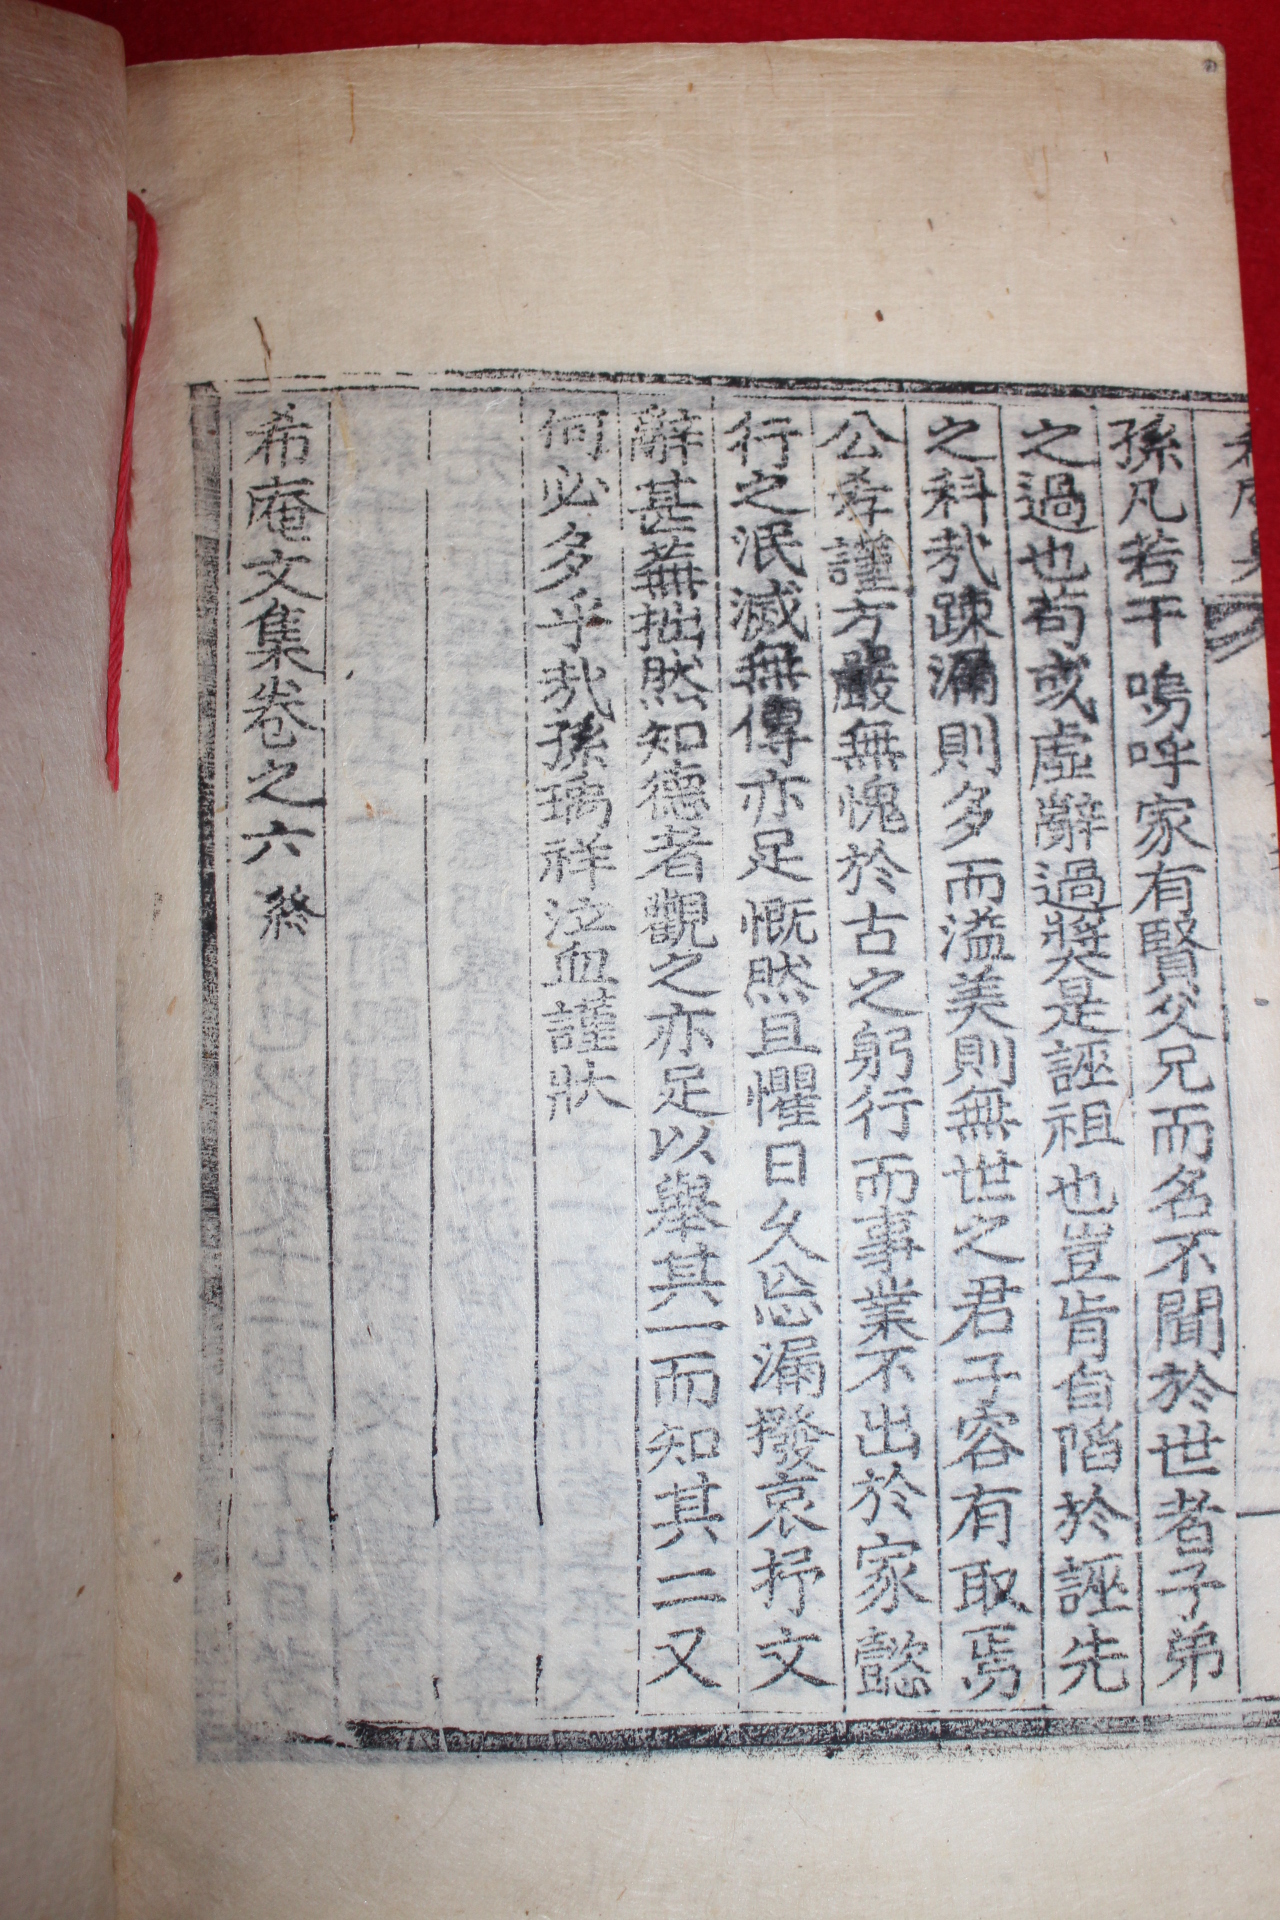 孫凡若干嗚呼家有賢父兄而名不聞於世者子弟
之過也苟或虛辭過奬是誣祖也豈肯自陷於誣先
之科哉踈漏則多而溢美則無世之君子容有取焉
公孝謹方嚴無愧於古之躬行而事業不出於家懿
行之泯滅無傳亦足慨然且懼日久忘漏撥哀抒文
辭甚蕪拙然知德者觀之亦足以舉其一而知其二又
何必多乎哉孫瑀祥泣血謹狀
希庵文集卷之六 終